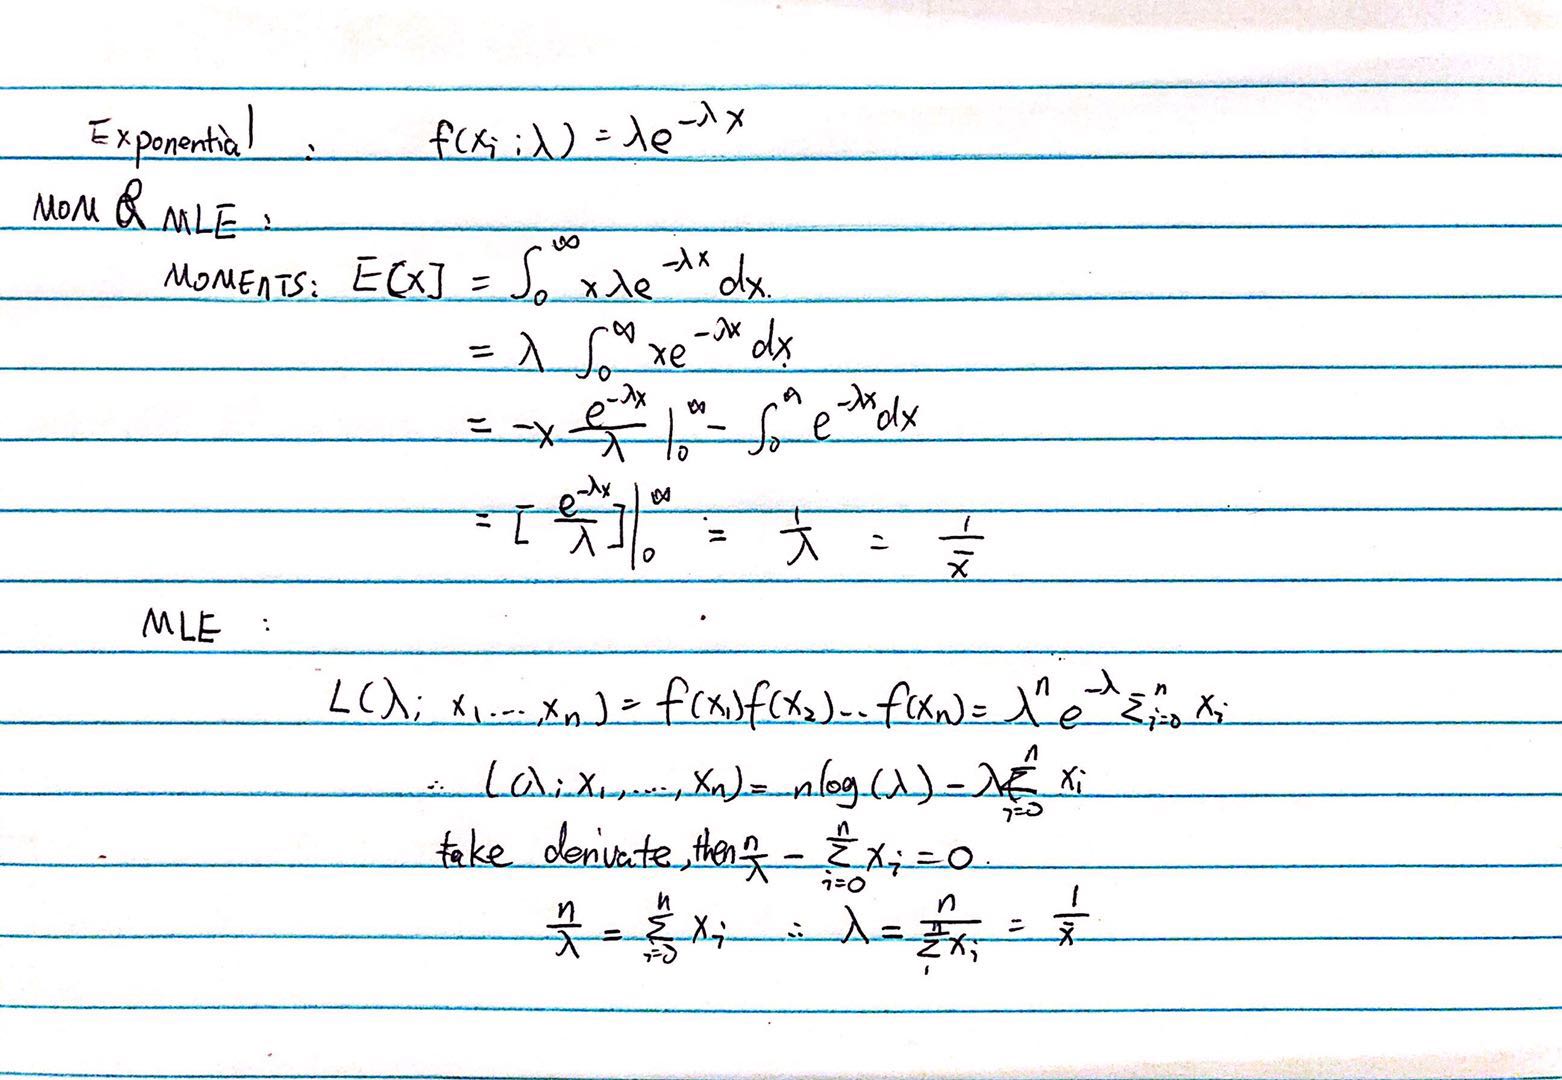 Exponential : f(xᵢ ; λ) = λe^{-λx}
MOM & MLE :
MOMENTS: E[x] = ∫₀^∞ xλe^{-λx} dx.
= λ ∫₀^∞ xe^{-λx} dx
= -x e^{-λx}/λ |₀^∞ - ∫₀^∞ e^{-λx} dx
= [ e^{-λx}/λ ] |₀^∞ = 1/λ = 1/x̄
MLE :
L(λ; x₁...,xₙ) = f(x₁)f(x₂)...f(xₙ) = λⁿ e^{-λ Σ_{i=0}^n xᵢ}
∴ l(λ; x₁,....,xₙ) = nlog(λ) - λ Σ_{i=0}^n xᵢ
take derivate, then n/λ - Σ_{i=0}^n xᵢ = 0.
n/λ = Σ_{i=0}^n xᵢ ∴ λ = n/Σ_i^n xᵢ = 1/x̄